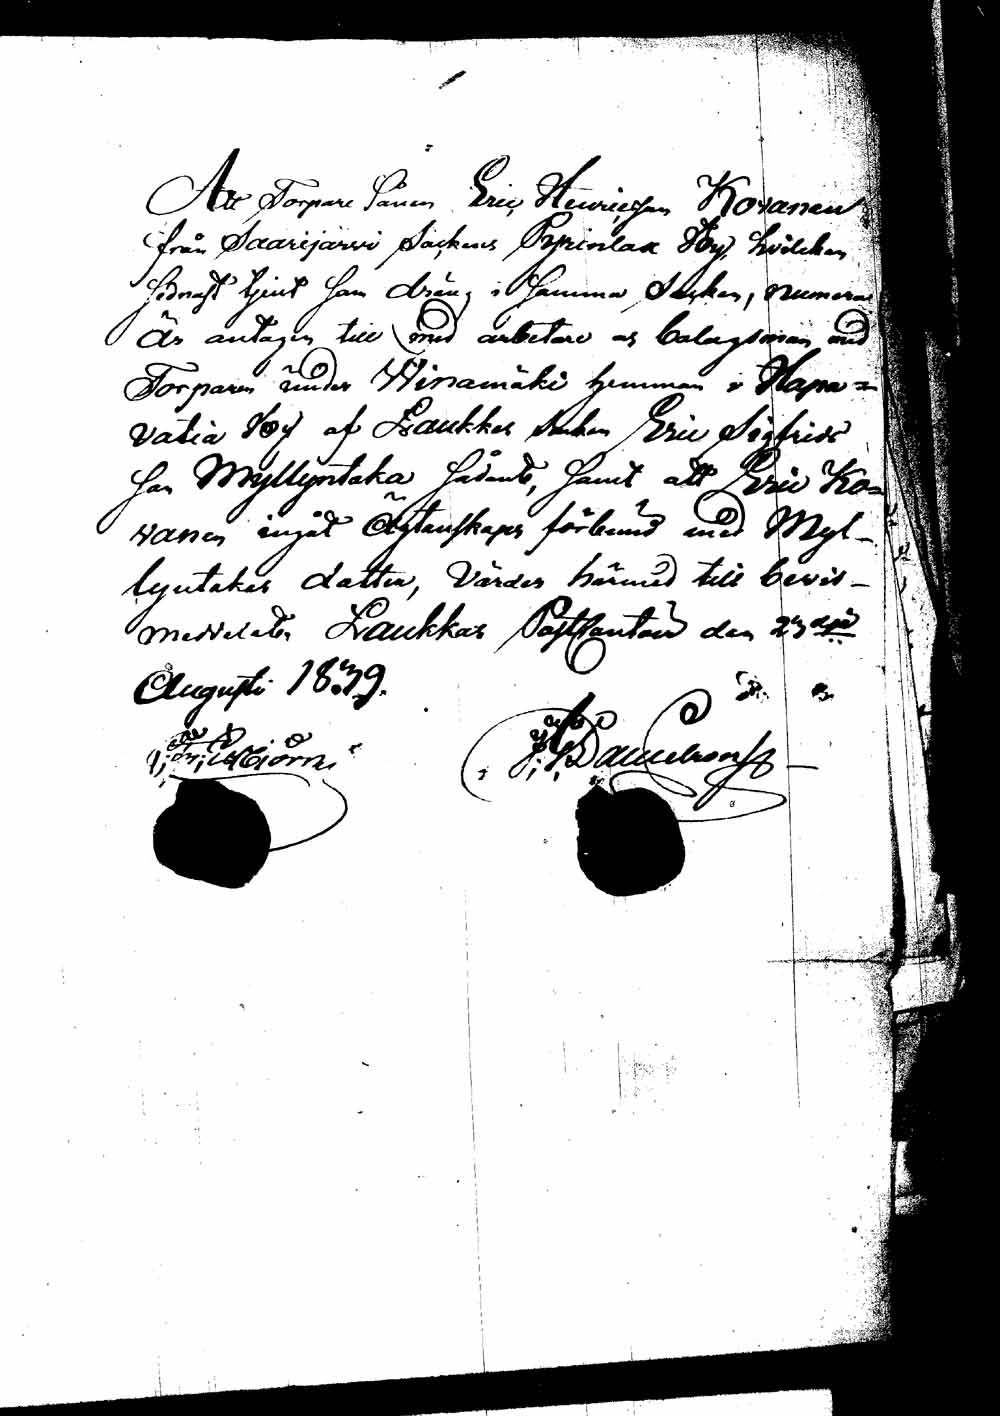 Att Torpare Sånen Eric Henricsson Kovanen
från Saarijärvi Sockens Pyrinlax By, hvilcken
sednast tjent som dräng i samma Socken, numera
är antagen till med arbetare as bolagsman med
Torparen under Hinamäki hemman i Hapa=
vatia By af Laukkas Socken Eric Sigfrids
son Myllyntaka hådants, samt att Eric Ko=
vanen ingåt Ägtenskaps förbund med Myl-
lyntakas dotter, varder härmed till bevis-
meddelat, Laukkas Postkontoir den 23 dje
Augusti 1839.
Danielson